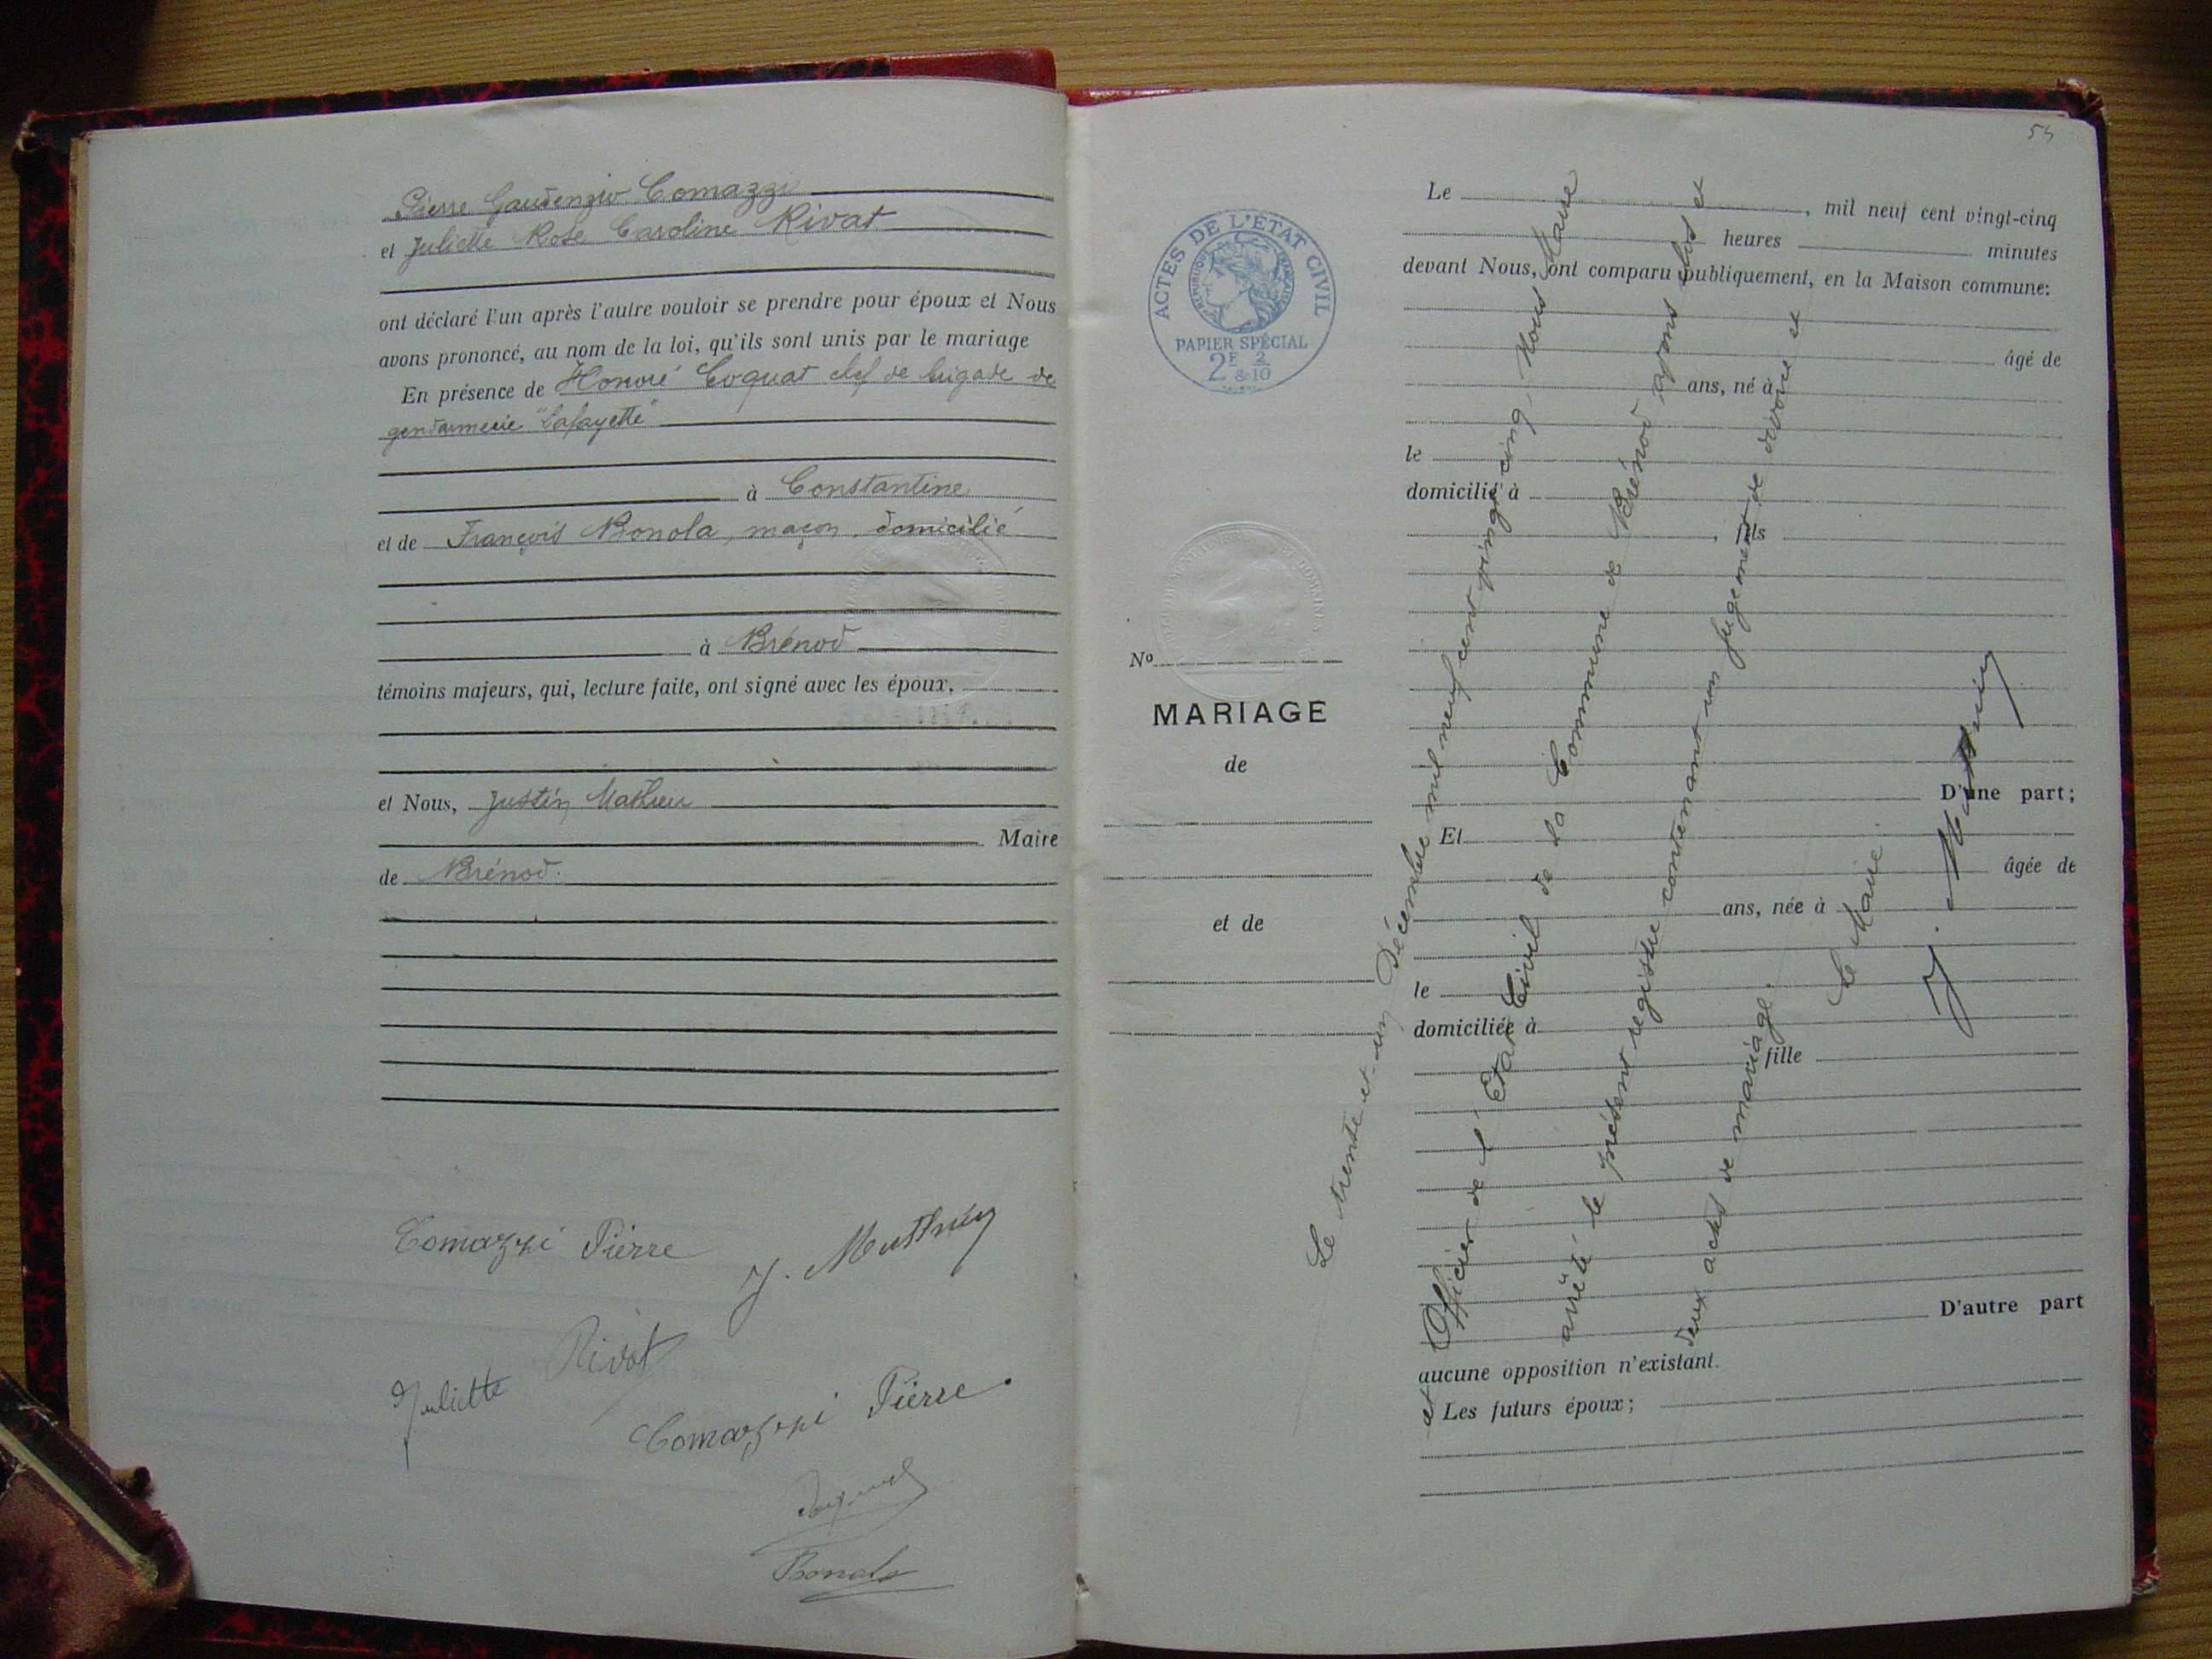 Pierre Gaudenzio Comazzi
et Juliette Rose Caroline Rivat
ont déclaré l'un après l'autre vouloir se prendre pour époux et Nous
avons prononcé, au nom de la loi, qu'ils sont unis par le mariage
En présence de Honoré Coquat chef de brigade de
gendarmerie "Lafayette"
à Constantine
et de François Bonola, maçon, domicilié
à Brénod
témoins majeurs, qui, lecture faite, ont signé avec les époux,
et Nous, Justin Mathieu
Maire
de Brénod.
Comazzi Pierre
J. Mathieu
Juliette Rivat
Comazzi Pierre
Coquat
Bonola
54
ACTES DE L'ÉTAT CIVIL
RÉPUBLIQUE FRANÇAISE
PAPIER SPÉCIAL
2F 2/8-10
No
MARIAGE
de
et de
Le , mil neuf cent vingt-cinq
heures minutes
devant Nous, ont comparu publiquement, en la Maison commune:
âgé de
ans, né à
le
domicilié à
, fils
D'une part;
Et
âgée de
ans, née à
le
domiciliée à
fille
D'autre part
aucune opposition n'existant.
Les futurs époux;
Le trente et un Décembre mil neuf cent vingt cinq, Nous Maire
et Officier de l'Etat Civil de la Commune de Brénod, avons clos et
arrêté le présent registre contenant un jugement de divorce et
deux actes de mariage.
Le Maire
J. Mathieu